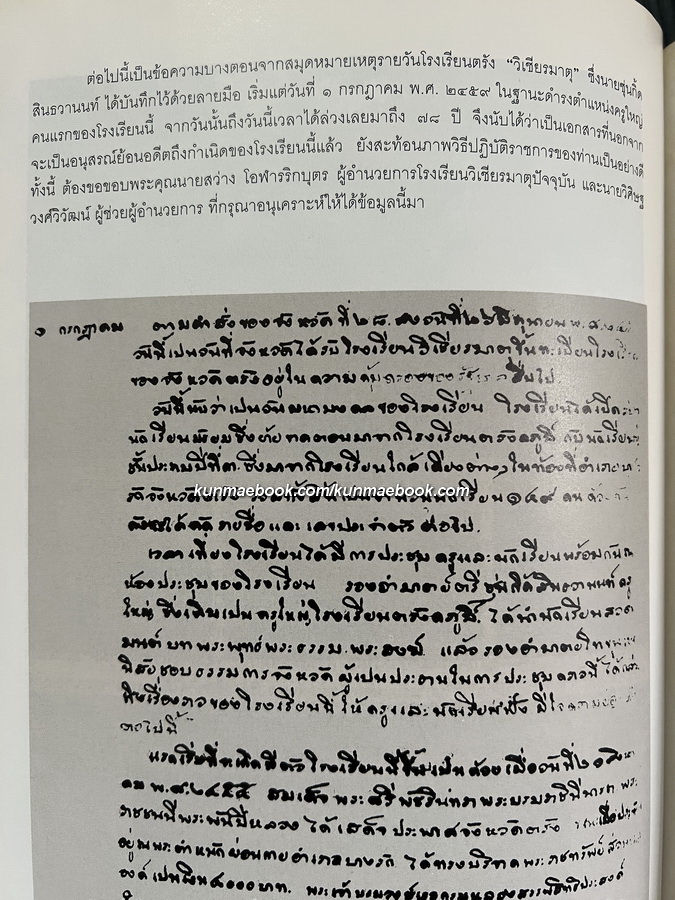 ต่อไปนี้เป็นข้อความบางตอนจากสมุดหมายเหตุรายวันโรงเรียนตรัง “วิเชียรมาตุ” ซึ่งนายชุ่นกิ้ด
สินธวานนท์ ได้บันทึกไว้ด้วยลายมือ เริ่มแต่วันที่ ๑ กรกฎาคม พ.ศ. ๒๔๕๙ ในฐานะดำรงตำแหน่งครูใหญ่
คนแรกของโรงเรียนนี้ จากวันนั้นถึงวันนี้เวลาได้ล่วงเลยมาถึง ๗๘ ปี จึงนับได้ว่าเป็นเอกสารที่นอกจาก
จะเป็นอนุสรณ์ย้อนอดีตถึงกำเนิดของโรงเรียนนี้แล้ว ยังสะท้อนภาพวิธีปฏิบัติราชการของท่านเป็นอย่างดี
ทั้งนี้ ต้องขอขอบพระคุณนายสว่าง โอฬารริกบุตร ผู้อำนวยการโรงเรียนวิเชียรมาตุปัจจุบัน และนายวิศิษฐ
วงศ์วิวัฒน์ ผู้ช่วยผู้อำนวยการ ที่กรุณาอนุเคราะห์ให้ได้ข้อมูลนี้มา
๑ กรกฎาคม ตามคำสั่งของจังหวัด ที่ ๒๘. ลงวันที่ ๒๖ มิถุนายน พ.ศ.
วันนี้เป็นวันที่จังหวัดได้รับโรงเรียนวิเชียรมาตุขึ้นทะเบียน
ของจังหวัดตรังอยู่ในความ สืบไป
วันนี้นับว่าเป็นวันมหามงคลของโรงเรียน โรงเรียนได้เปิด
นักเรียนมัธยมซึ่งย้ายมาจากโรงเรียนตรังคภูมิ์ กับนักเรียน
ชั้นประถมปีที่ ๓. ซึ่งมาจากโรงเรียนใกล้เคียงต่างๆ ในท้องที่อำเภอ
kunmaebook.com/kunmaebook.com
เรียน ๑๔๙ คน
ได้ รายชื่อและเลขประจำตัว ต่อไป.
เวลาเที่ยงโรงเรียนได้มีการประชุมครูและนักเรียนพร้อมกัน
ห้องประชุมของโรงเรียน รองอำมาตย์ตรี ชุ่นกิ้ดสินธวานนท์ ครู
ใหญ่, ซึ่งเดิมเป็นครูใหญ่โรงเรียนตรังคภูมิ์. ได้นำนักเรียนสวด
มนต์ บทพระพุทธ์ พระธรรม. พระสงฆ์. แล้ว รองอำมาตย์โท
ธรรมการจังหวัด ผู้เป็นประธานในการประชุมคราวนี้ ได้
ถึงเรื่องราวของโรงเรียนนี้ ให้ครูและนักเรียนฟัง มี
ต่อไปนี้
แรกเริ่มที่จะเกิดมีตัวโรงเรียนนี้ขึ้นเป็นด้วย เมื่อวันที่ ๒๐ สิงหา
คม พ.ศ. ๒๔๕๕ สมเด็จพระศรีพัชรินทราพระบรมราชินีนารถ พระ
ราชชนนีพระพันปีหลวง ได้เสด็จประพาศจังหวัดตรัง
อยู่ณพระตำหนักผ่อนกายอำเภอบางรัก ได้ทรงบริจาคพระราชทรัพย์
องค์เป็นเงิน ๘๐๐๐ บาท. พระเจ้าบรมวงษ์เธอ